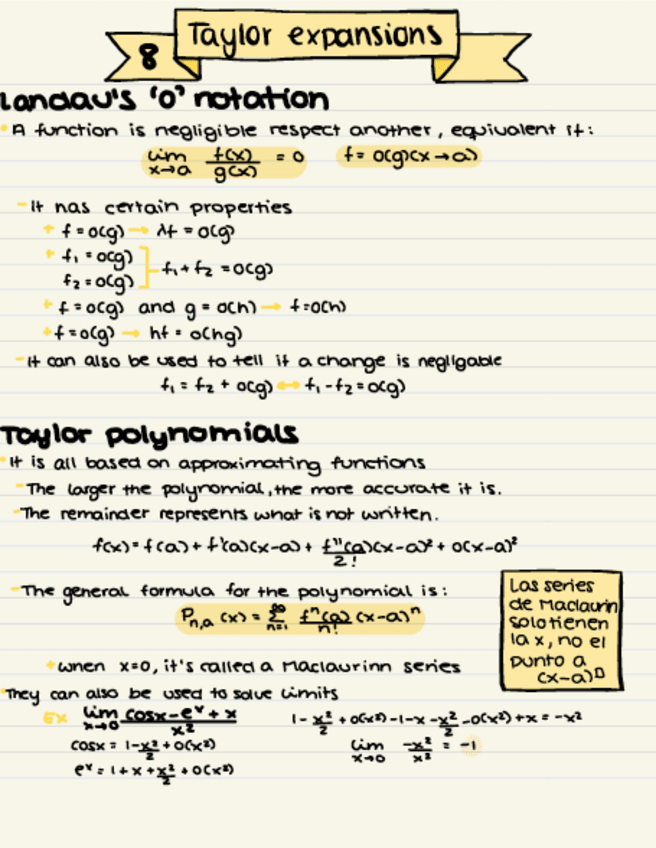 8
Taylor expansions
Landau's 'o' notation
A function is negligible respect another, equivalent if:
lim x→a f(x)/g(x) = 0 f = o(g)(x→a)
-It has certain properties
+ f = o(g) → λf = o(g)
+ f₁ = o(g)
f₂ = o(g)
f₁ + f₂ = o(g)
+ f = o(g) and g = o(h) → f = o(h)
+ f = o(g) → hf = o(hg)
-It can also be used to tell if a change is negligable
f₁ = f₂ + o(g) ↔ f₁ - f₂ = o(g)
Taylor polynomials
It is all based on approximating functions
-The larger the polynomial, the more accurate it is.
-The remainder represents what is not written.
f(x) = f(a) + f'(a)(x-a) + f''(a)(x-a)²/2! + o(x-a)²
-The general formula for the polynomial is:
Pn,a (x) = ∞ Σ n=1 fⁿ(a)/n! (x-a)ⁿ
Las series
de Maclaurin
solo tienen
la x, no el
punto a
(x-a)ⁿ
+ when x=0, it's called a Maclaurinn series
They can also be used to solve limits
EX lim x→0 cosx - eˣ + x / x²
cosx = 1 - x²/2 + o(x²)
eˣ = 1 + x + x²/2 + o(x²)
1 - x²/2 + o(x²) - 1 - x - x²/2 - o(x²) + x = -x²
lim x→0 -x²/x² = -1